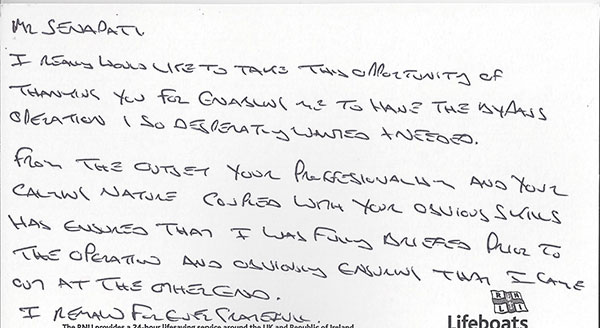 Mr SENAPATI
I REALLY WOULD LIKE TO TAKE THIS OPPORTUNITY OF
THANKING YOU FOR ENABLING ME TO HAVE THE BYPASS
OPERATION I SO DESPERATELY WANTED + NEEDED.
FROM THE OUTSET YOUR PROFFESIONALISM AND YOUR
CALMING NATURE COUPLED WITH YOUR OBVIOUS SKILLS
HAS ENSURED THAT I WAS FULLY BRIEFED PRIOR TO
THE OPERATION AND OBVIOUSLY ENSURING THAT I CAME
OUT AT THE OTHER END.
I REMAIN FOREVER GRATEFUL.
The RNLI provides a 24-hour lifesaving service around the UK and Republic of Ireland
RNLI
Lifeboats